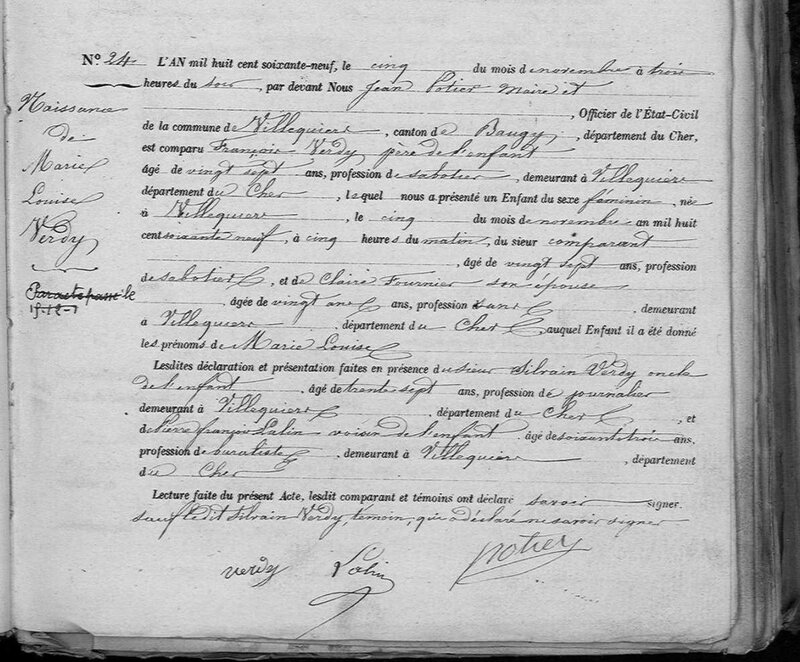 N.° 24. L'AN mil huit cent soixante-neuf, le cinq du mois de novembre à trois
heures du soir, par devant Nous Jean Potier Maire et
, Officier de l'État-Civil
de la commune de Villequiers, canton de Baugy, département du Cher,
est comparu François Verdy père de l'enfant
âgé de vingt sept ans, profession de sabotier, demeurant à Villequiers
département du Cher, lequel nous a présenté un Enfant du sexe féminin, née
à Villequiers, le cinq du mois de novembre an mil huit
cent soixante neuf, à cinq heures du matin, du sieur comparant
, âgé de vingt sept ans, profession
de sabotier, et de Claire Fournier son épouse
, âgée de vingt ans, profession sans, demeurant
à Villequiers, département du Cher, auquel Enfant il a été donné
les prénoms de Marie Louise
Lesdites déclaration et présentation faites en présence du sieur Silvain Verdy oncle
de l'enfant, âgé de trente sept ans, profession de journalier
demeurant à Villequiers, département du Cher, et
de Pierre françois Lalin voisin de l'enfant, âgé de soixante trois ans,
profession de buraliste, demeurant à Villequiers, département
du Cher
Lecture faite du présent Acte, lesdit comparant et témoins ont déclaré savoir signer.
sauf ledit Silvain Verdy, témoin, qui a déclaré ne savoir signer
verdy Lalin Potier
Naissance
de
Marie
Louise
Verdy